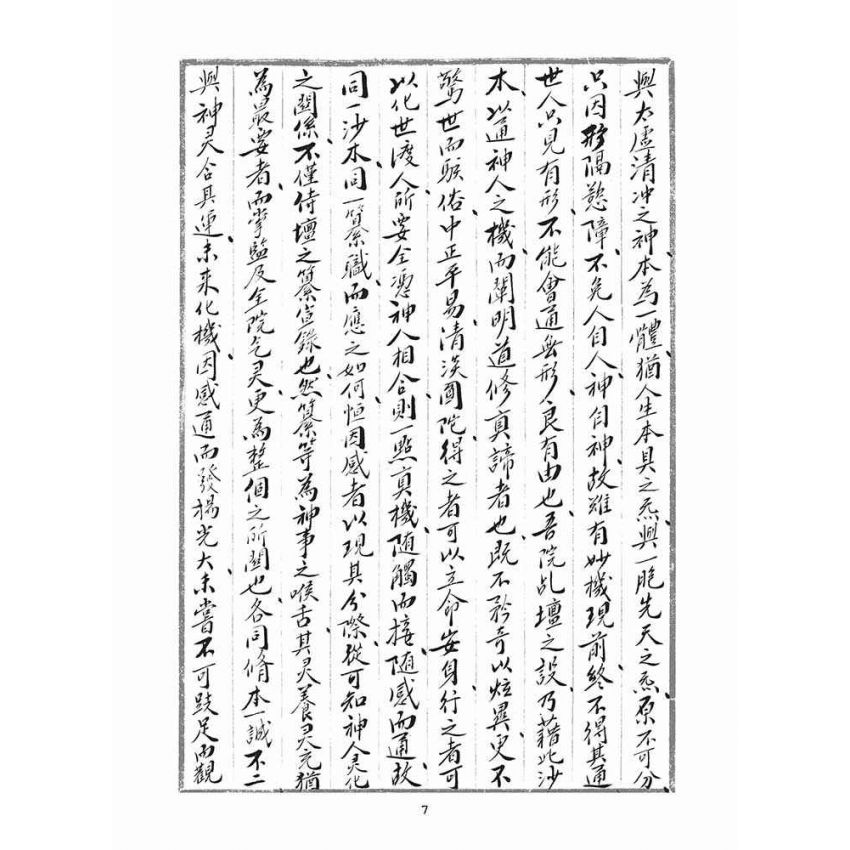 與太虛清沖之神、本為一體、猶人生本具之炁、與一胞先天之炁、原不可分、
只因形隔慾障、不免人自人神自神、故雖有妙機現前、終不得其通、
世人只見有形、不能會通無形、良有由也、吾院乩壇之設、乃藉此沙
木、以通神人之機、而闡明道修真諦者也、既不矜奇以炫異、更不
驚世而駭俗、中正平易、清淡圓陀、得之者可以立命安身、行之者可
以化世渡人、所要全憑神人相合、則一點真機、隨觸而接、隨感而通、故
同一沙木、同一纂職、而應之如何、恒因感者以現其分際、從可知神人灵化
之關係、不僅侍壇之纂宣錄也、然纂等為神事之喉舌、其灵養灵充、猶
為最要者、而掌監及全院乞灵、更為整個之所關也、各同脩本一誠不二、
與神灵合其運、未來化機、因感通而發揚光大、未嘗不可跂足而觀
7